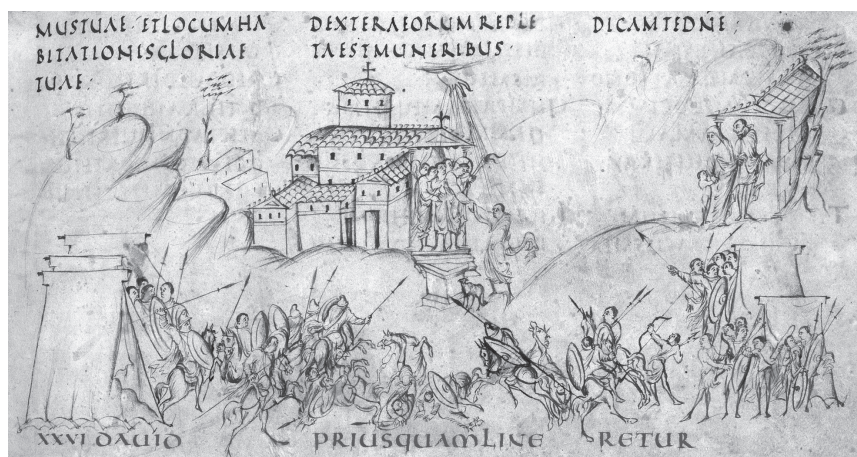 MUSTUAE· ETLOCUMHA
BITATIONISGLORIAE
TUAE·
DEXTERAEORUMREPLE
TAESTMUNERIBUS·
DICAMTEDNE·
XXVI DAUID
PRIUSQUAMLINE
RETUR